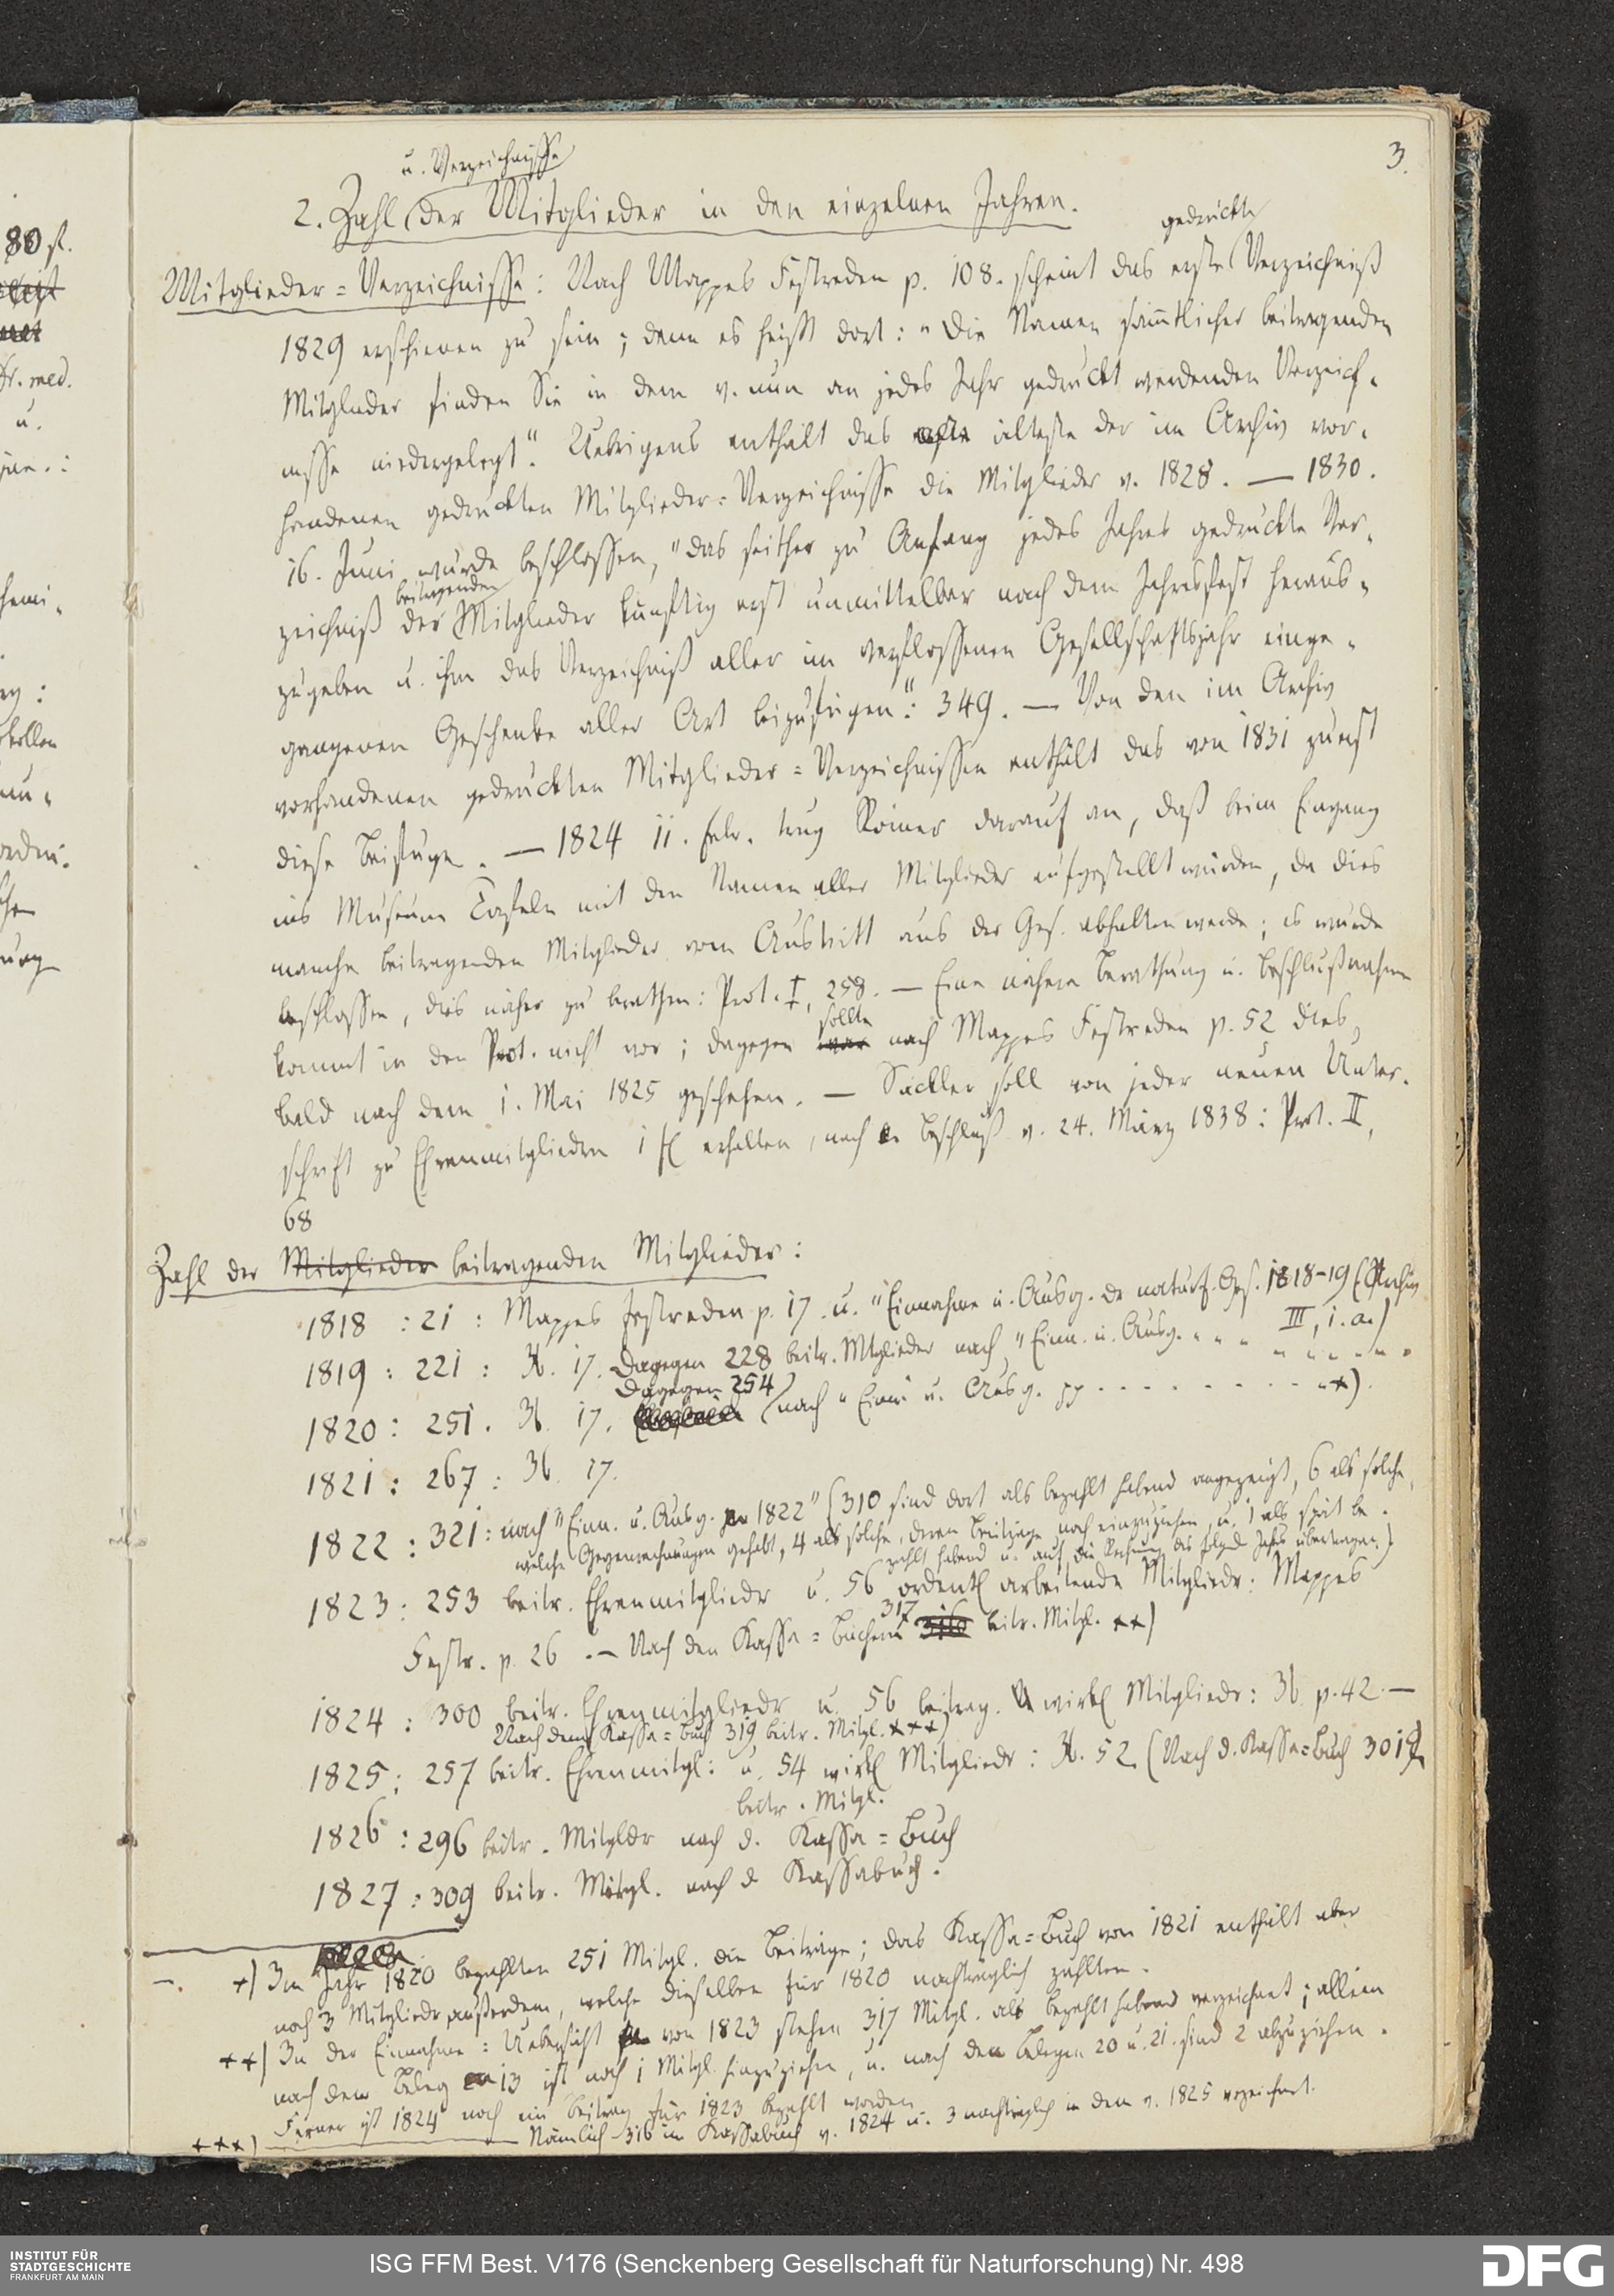 3.
u. Verzeichnisse
2. Zahl der Mitglieder in den einzelnen Jahren.
gedruckte
Mitglieder=Verzeichnisse: Nach Mappes Festreden p. 108. scheint das erste Verzeichniß
1829 erschienen zu sein; denn es heißt dort: "Die Namen sämtlicher beitragenden
Mitglieder finden Sie in dem v. nun an jedes Jahr gedruckt werdenden Verzeich-
nisse niedergelegt". Uebrigens enthält das älteste der im Archiv vor-
handenen gedruckten Mitglieder=Verzeichnisse die Mitglieder v. 1828. — 1830.
16. Juni wurde beschlossen, "das seither zu Anfang jedes Jahres gedruckte Ver-
beitragenden
zeichniß der Mitglieder künftig erst unmittelbar nach dem Jahresfest heraus-
zugeben u. ihm das Verzeichniß aller im verflossenen Gesellschaftsjahr einge-
gangenen Geschenke aller Art beizufügen": 349. — Von den im Archiv
vorhandenen gedruckten Mitglieder=Verzeichnissen enthält das von 1831 zuerst
diese Beifüge. — 1824 11. Febr. trug Römer darauf an, daß beim Eingang
ins Museum Tafeln mit den Namen aller Mitglieder aufgestellt würden, da dies
manche beitragenden Mitglieder vom Austritt aus der Ges. abhalten werde; es wurde
beschlossen, dies näher zu berathen: Prot. I, 258. — Eine nähere Berathung u. Beschlußnahme
sollte
kommt in den Prot. nicht vor; dagegen war nach Mappes Festreden p. 52 dies
bald nach dem 1. Mai 1825 geschehen. — Säckler soll von jeder neuen Unter-
schrift zu Ehrenmitgliedern 1 fl erhalten, nach Beschluß v. 24. März 1838: Prot. II,
68
Zahl der Mitglieder beitragenden Mitglieder:
1818 : 21 : Mappes Festreden p. 17. u. "Einnahme u. Ausg. der naturf. Ges. 1818-19 (Archiv
III, 1. a.)
1819 : 221 : Ib. 17. Dagegen 228 beitr. Mitglieder nach "Einn. u. Ausg. " " " " " " "
Dagegen 254
1820 : 251. Ib. 17. (nach "Einn. u. Ausg. pp - - - - - - - - "+).
1821 : 267 : Ib. 17.
1822 : 321 : nach "Einn. u. Ausg. 1822" (310 sind dort als bezahlt habend angezeigt, 6 als solche,
welche Gegenrechnungen gehabt, 4 als solche, deren Beiträge noch einzuziehen, u. 1 als spät be-
zahlt habend u. auf die Rechnung des folgend Jahrs übertragen.)
1823 : 253 beitr. Ehrenmitglieder u. 56 ordentl arbeitende Mitglieder: Mappes
317
Festr. p. 26 . — Nach den Kassa=Büchern 316 beitr. Mitgl. ++)
1824 : 300 beitr. Ehrenmitglieder u. 56 beitrag. wirkl Mitglieder: Ib. p. 42. —
Nach dem Kassa=Buch 319 beitr. Mitgl. +++)
1825 : 257 beitr. Ehrenmitgl: u. 54 wirkl Mitglieder : Ib. 52. (Nach d. Kassa=Buch 301
beitr. Mitgl.
1826 : 296 beitr. Mitglder nach d. Kassa=Buch
1827 : 309 beitr. Mitgl. nach d Kassabuch.
+) Im Jahr 1820 bezahlten 251 Mitgl. die Beiträge; das Kassa=Buch von 1821 enthält aber
noch 3 Mitglieder außerdem, welche dieselben für 1820 nachträglich zahlten.
++) In der Einnahme=Uebersicht von 1823 stehen 317 Mitgl. als bezahlt habend verzeichnet; allein
nach dem Beleg 13 ist noch 1 Mitgl. hinzuzuziehen, u. nach den Belegen 20 u. 21. sind 2 abzuziehen.
Ferner ist 1824 noch ein Beitrag für 1823 bezahlt worden
+++) Nämlich 316 im Kassabuch v. 1824 u. 3 nachträglich in dem v. 1825 verzeichnet.
80 fl.
Dr. med.
u.
INSTITUT FÜR
STADTGESCHICHTE
FRANKFURT AM MAIN
ISG FFM Best. V176 (Senckenberg Gesellschaft für Naturforschung) Nr. 498
DFG